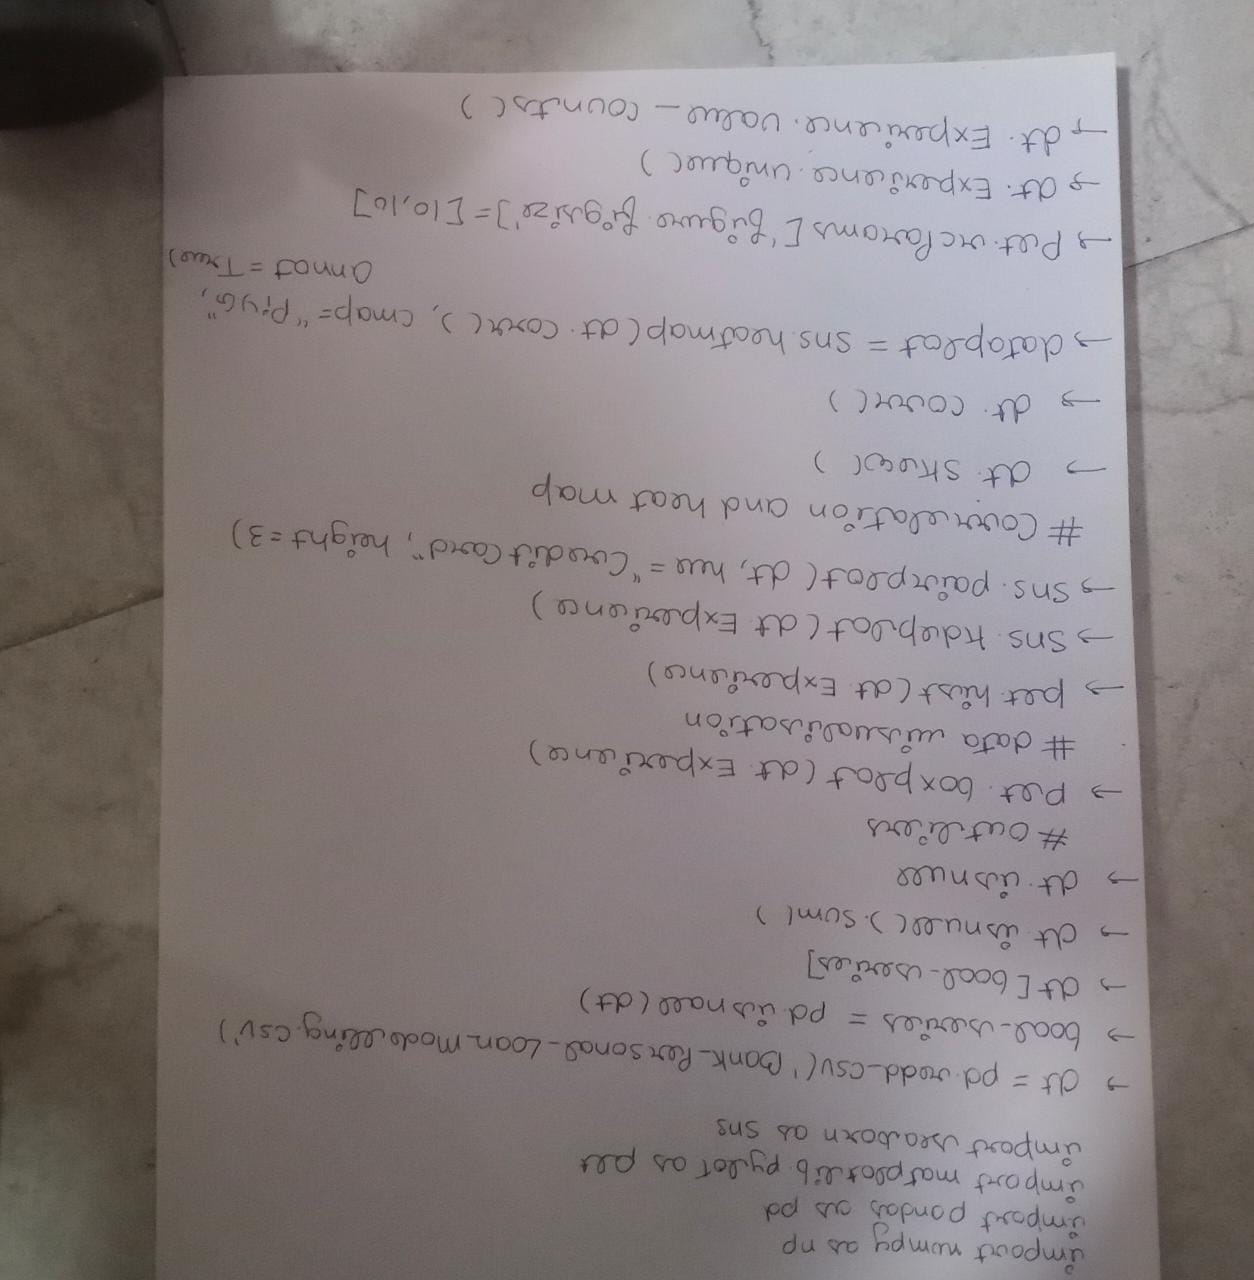 import numpy as np
import pandas as pd
import matplotlib.pyplot as plt
import seaborn as sns
→ dt = pd.read_csv('Bank_Personal_Loan_Modelling.csv')
→ bool_series = pd.isnull(dt)
→ dt[bool_series]
→ dt.isnull().sum()
→ dt.isnull
# outliers
→ plt.boxplot(dt.Experience)
# data visualisation
→ plt.hist(dt.Experience)
→ sns.kdeplot(dt.Experience)
→ sns.pairplot(dt, hue="CreditCard", height=3)
# Correlation and heat map
→ dt.skew()
→ dt.corr()
→ dataplot = sns.heatmap(dt.corr(), cmap="PiYG",
annot=True)
→ plt.rcParams['figure.figsize']=[10,10]
→ dt.Experience.unique()
→ dt.Experience.value_counts()